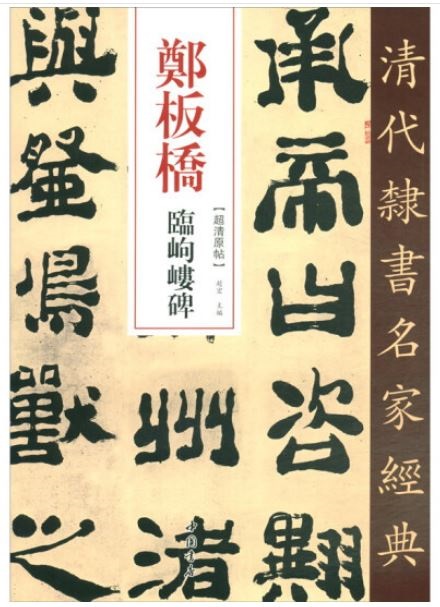 清代隸書名家經典
承帝曰咨翼
鄭板橋
【超清原帖】
臨岣嶁碑
趙宏 主編
洲渚
中国書店
與登鳥獸之